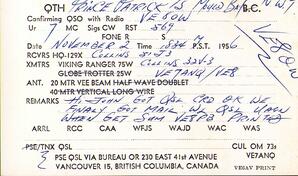 QTH PRINCE PATRICK IS MOULD BAY NWT B.C.
Confirming QSO with Radio VE8OW
Ur 7 MC Sigs CW RST 569
FONE R S
At NOVEMBER 2 P.S.T. 1956
RCVRS HQ-129X COLLINS
XMTRS VIKING RANGER 75W COLLINS 32V-3
GLOBE TROTTER 25W VE7ANQ/VE8
ANT. 20 MTR VEE BEAM HALF WAVE DOUBLET
40 MTR VERTICAL LONG WIRE
REMARKS HI JOHN GOT CRD OK WE
FINALLY GOT MAIL WL QSL
WHEN GET SUM VE8PB PRINTED
ARRL RCC CAA WFJS WAJD WAC WAS
PSE/TNX QSL CUL OM 73s
PSE QSL VIA BUREAU OR 230 EAST 41st AVENUE VE7ANQ
VANCOUVER 15, BRITISH COLUMBIA, CANADA VEGAV PRINT
VE8OW